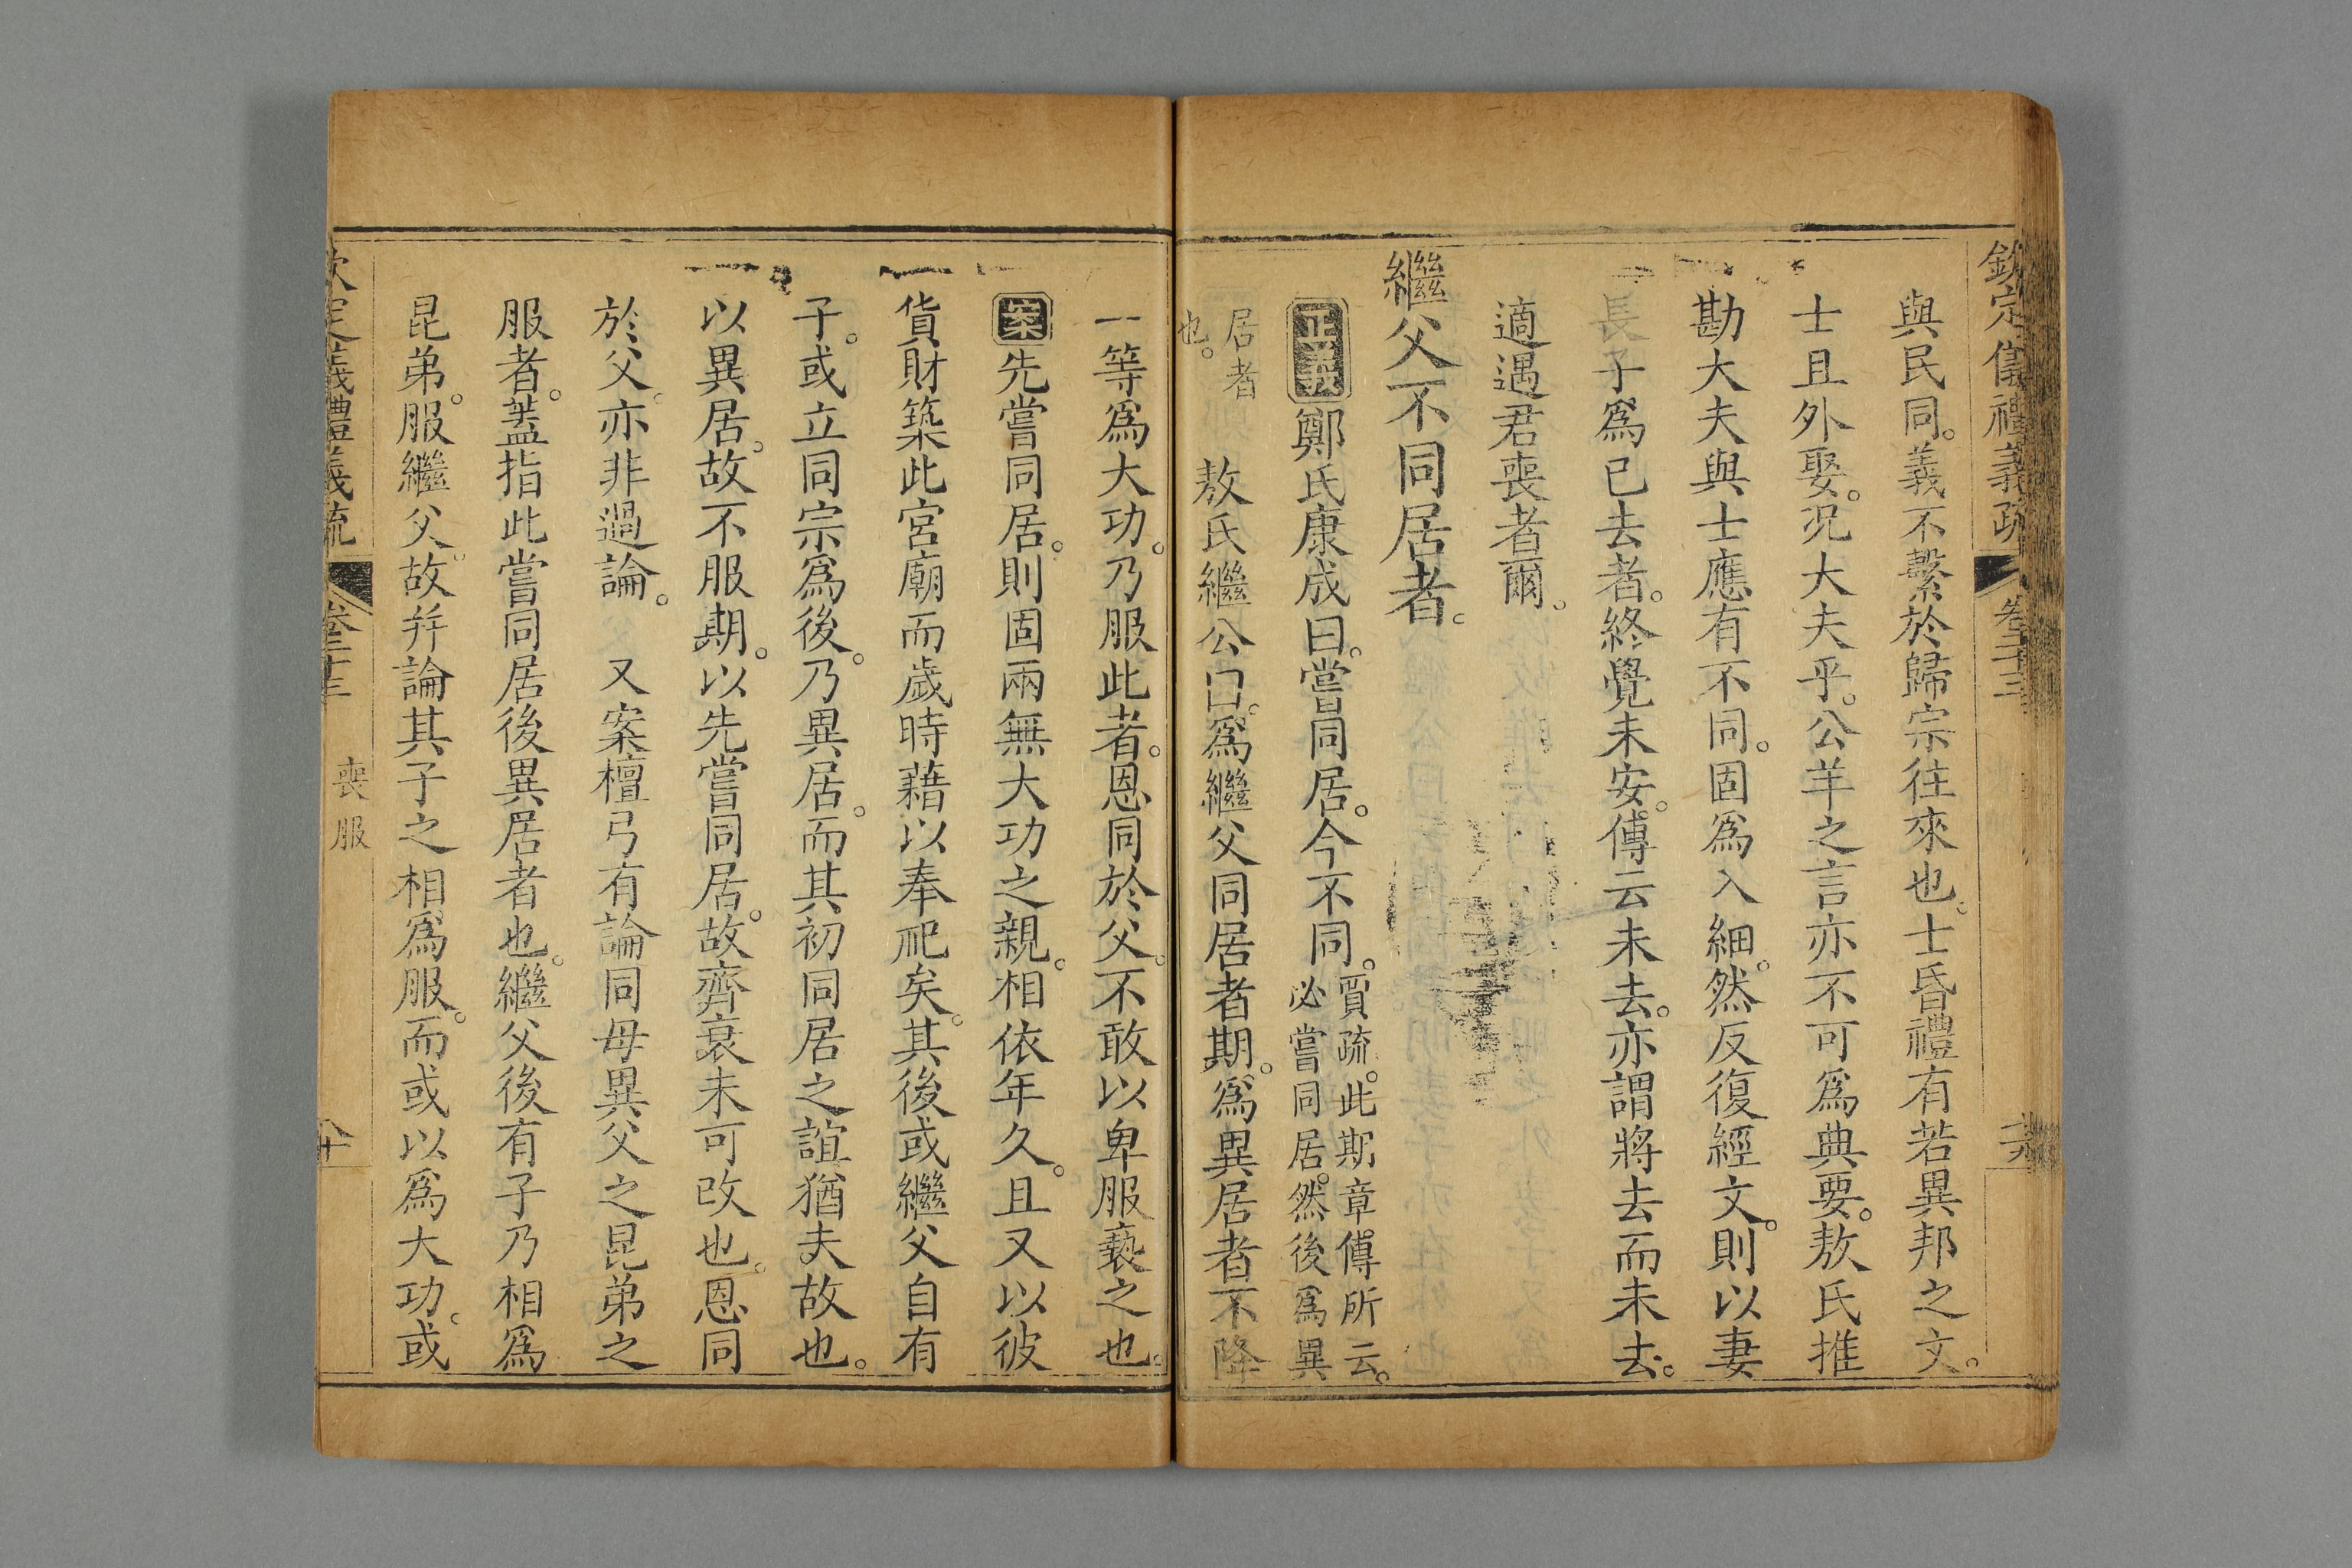 欽定儀禮義疏 卷二十三
與民同。義不繫於歸宗往來也。士昏禮有若異邦之文。
士且外娶。況大夫乎。公羊之言亦不可爲典要。敖氏推
勘大夫與士應有不同。固爲入細。然反復經文。則以妻
長子爲已去者。終覺未安。傳云未去。亦謂將去而未去。
適遇君喪者爾。
繼父不同居者。
正義 鄭氏康成曰。嘗同居。今不同。賈疏。此期章傳所云。
必嘗同居。然後爲異
居者
也。
敖氏繼公曰。爲繼父同居者期。爲異居者不降
一等爲大功。乃服此者。恩同於父。不敢以卑服褻之也。
案 先嘗同居。則固兩無大功之親。相依年久。且又以彼
貨財築此宮廟而歲時藉以奉祀矣。其後或繼父自有
子。或立同宗爲後。乃異居。而其初同居之誼猶夫故也。
以異居。故不服期。以先嘗同居。故齊衰未可改也。恩同
於父。亦非過論。 又案檀弓有論同母異父之昆弟之
服者。蓋指此嘗同居後異居者也。繼父後有子乃相爲
昆弟。服繼父。故并論其子之相爲服。而或以爲大功。或
欽定義禮義疏 卷二十三 喪服